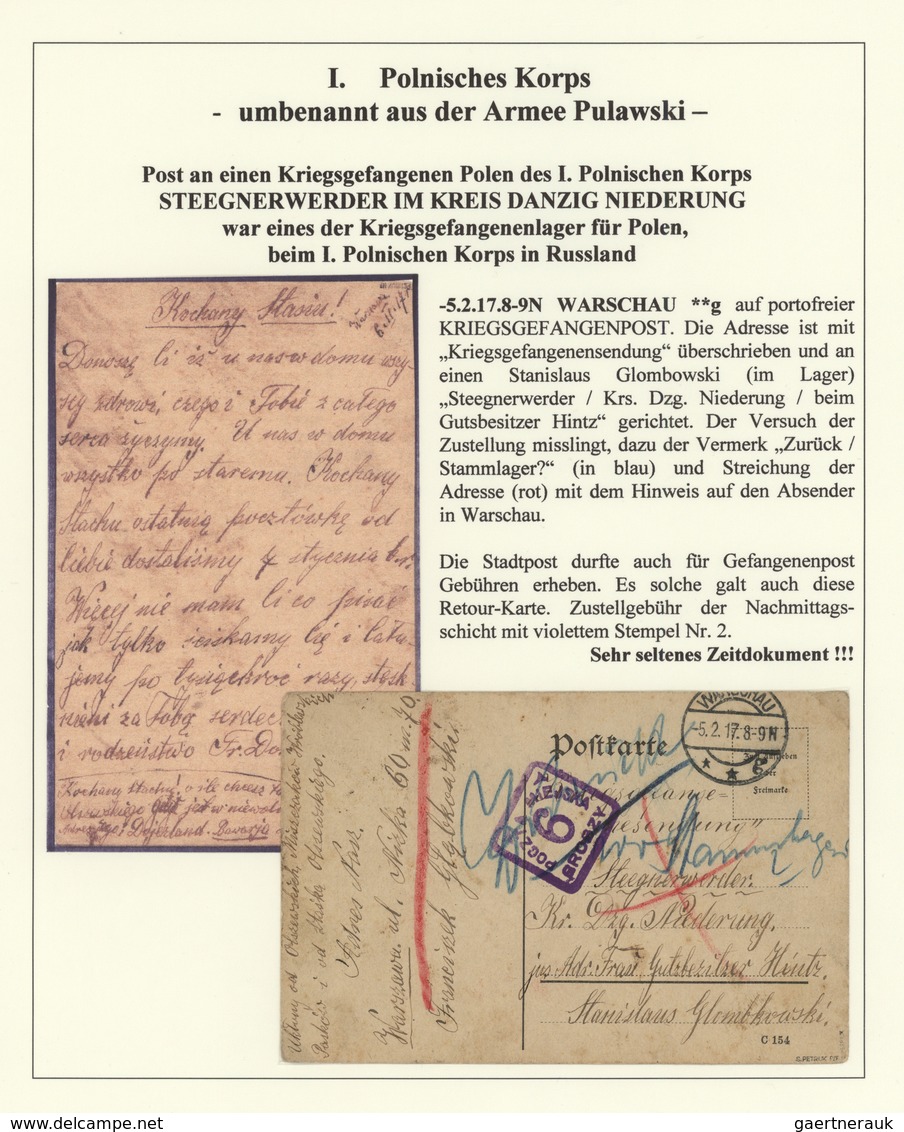 I. Polnisches Korps
- umbenannt aus der Armee Pulawski –
Post an einen Kriegsgefangenen Polen des I. Polnischen Korps
STEEGNERWERDER IM KREIS DANZIG NIEDERUNG
war eines der Kriegsgefangenenlager für Polen,
beim I. Polnischen Korps in Russland
-5.2.17.8-9N WARSCHAU **g auf portofreier
KRIEGSGEFANGENPOST. Die Adresse ist mit
„Kriegsgefangenensendung“ überschrieben und an
einen Stanislaus Glombowski (im Lager)
„Steegnerwerder / Krs. Dzg. Niederung / beim
Gutsbesitzer Hintz“ gerichtet. Der Versuch der
Zustellung misslingt, dazu der Vermerk „Zurück /
Stammlager?“ (in blau) und Streichung der
Adresse (rot) mit dem Hinweis auf den Absender
in Warschau.
Die Stadtpost durfte auch für Gefangenenpost
Gebühren erheben. Es solche galt auch diese
Retour-Karte. Zustellgebühr der Nachmittags-
schicht mit violettem Stempel Nr. 2.
Sehr seltenes Zeitdokument !!!
Kochany Stasiu!
Donoszę Ci iż u nas w domu wszy-
scy zdrowi, czego i Tobie z całego
serca życzymy. U nas w domu
wszystko po staremu. Kochany
Stachu ostatnią pocztówkę od
Ciebie dostaliśmy 7 stycznia b.r.
Więcej nie mam Ci co pisać
jak tylko ściskamy Cię i cału-
jemy po tysiąckroć razy, stęsk-
nieni za Tobą serdec
i rodzeństwo Fr.
Kochany Stachu! o ile chcesz
jest w niewol
Dojczland. Bavarja
WARSCHAU
-5.2.17.8-9N
Postkarte
Freimarke
POCZTA MIEJSKA
6
GROSZY
Stammlager
Steegnerwerder.
Kr. Dzg. Niederung.
Adr. Frau Gutzbezitzer Hintz.
Stanislaus Glombkowski.
C 154
Adres Nasz.
Warszawa ul. Niska 60 m 70.
Franciszek Głąbkowski.
gaertnerauk
gaertnerauk